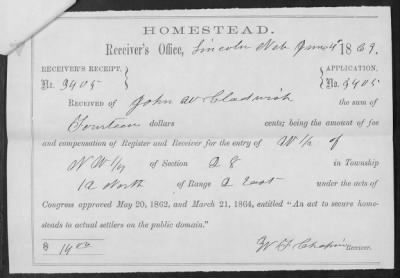 HOMESTEAD.
Receiver's Office, Lincoln Neb June 4th 1869.
RECEIVER'S RECEIPT, APPLICATION,
No. 3405 No. 3405
RECEIVED OF John W the sum of
Fourteen dollars cents; being the amount of fee
and compensation of Register and Receiver for the entry of W 1/2 of
N W 1/4 of Section 28 in Township
12 North of Range 2 East under the acts of
Congress approved May 20, 1862, and March 21, 1864, entitled "An act to secure home-
steads to actual settlers on the public domain."
$ 14.00 Receiver.